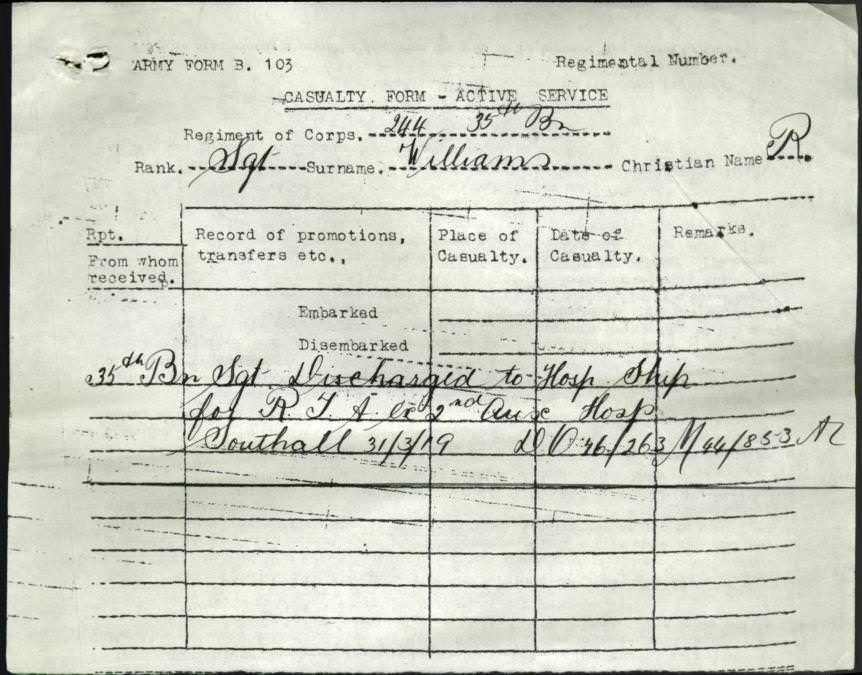 ARMY FORM B. 103
Regimental Number.
CASUALTY FORM - ACTIVE SERVICE
Regiment of Corps. 244 35th Bn
Rank. Sgt Surname. Williams Christian Name R.
Rpt.
From whom received.
Record of promotions, transfers etc.,
Place of Casualty.
Date of Casualty.
Remarks.
Embarked
Disembarked
35th Bn Sgt Discharged to Hosp Ship
for R T A ex 2nd Aux Hosp
Southall 31/3/19 D O 46/263 M 44/853